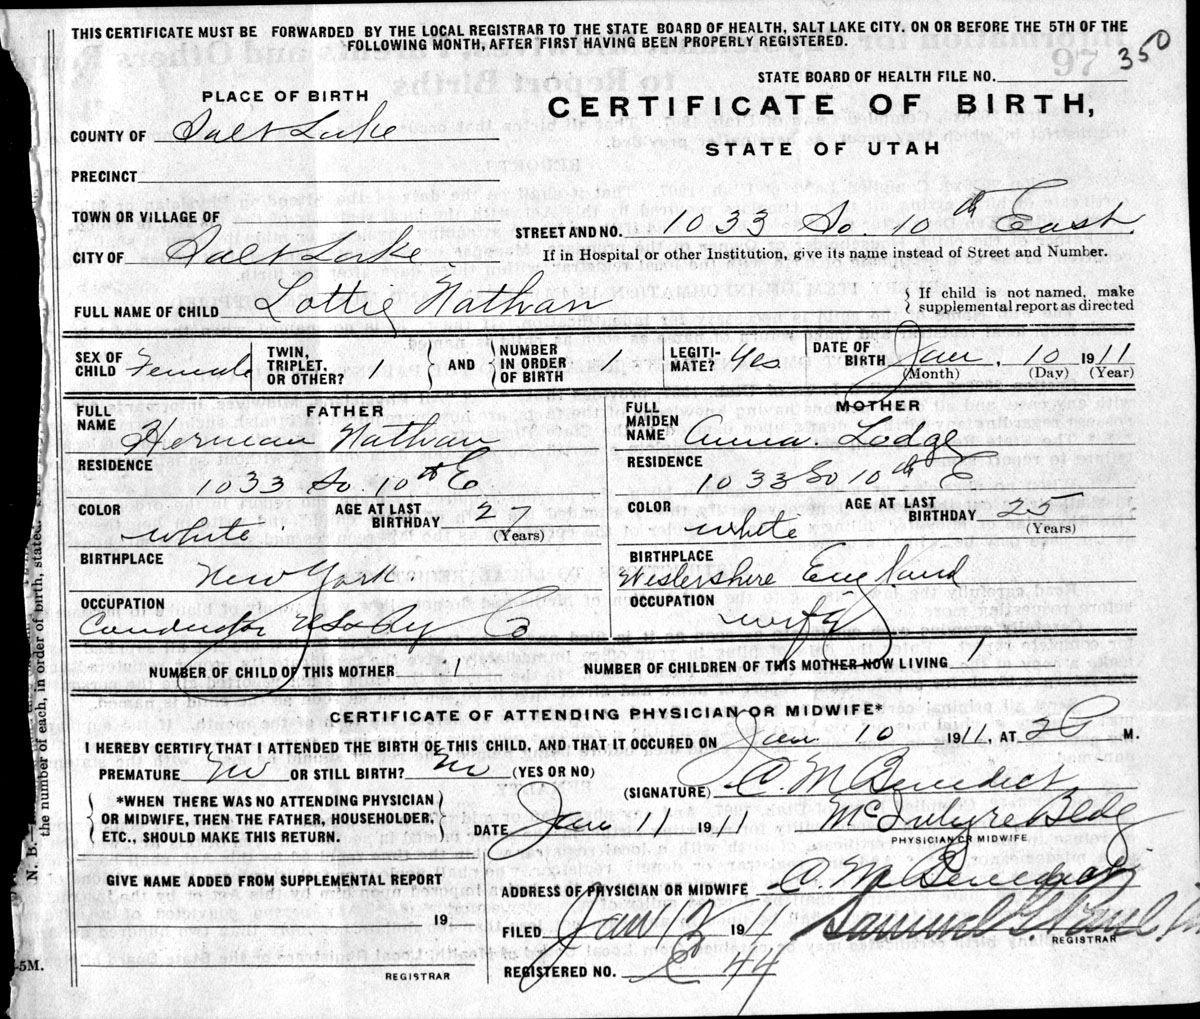 THIS CERTIFICATE MUST BE FORWARDED BY THE LOCAL REGISTRAR TO THE STATE BOARD OF HEALTH, SALT LAKE CITY. ON OR BEFORE THE 5TH OF THE
FOLLOWING MONTH, AFTER FIRST HAVING BEEN PROPERLY REGISTERED.
97 350
STATE BOARD OF HEALTH FILE NO.
PLACE OF BIRTH
CERTIFICATE OF BIRTH,
COUNTY OF Salt Lake
STATE OF UTAH
PRECINCT
TOWN OR VILLAGE OF
STREET AND NO. 1033 So. 10th East
CITY OF Salt Lake
If in Hospital or other Institution, give its name instead of Street and Number.
FULL NAME OF CHILD Lottie Nathan
{ If child is not named, make
supplemental report as directed
SEX OF CHILD Female TWIN, TRIPLET, OR OTHER? 1 } AND { NUMBER IN ORDER OF BIRTH 1 LEGITIMATE? Yes DATE OF BIRTH Jan 10 1911
(Month) (Day) (Year)
FATHER
FULL NAME Herman Nathan
RESIDENCE
1033 So. 10th E
COLOR white AGE AT LAST BIRTHDAY 27
(Years)
BIRTHPLACE
New York
OCCUPATION
Conductor Co
MOTHER
FULL MAIDEN NAME Anna Lodge
RESIDENCE
1033 So 10th E
COLOR white AGE AT LAST BIRTHDAY 25
(Years)
BIRTHPLACE
England
OCCUPATION
wife
NUMBER OF CHILD OF THIS MOTHER 1 NUMBER OF CHILDREN OF THIS MOTHER NOW LIVING 1
CERTIFICATE OF ATTENDING PHYSICIAN OR MIDWIFE*
I HEREBY CERTIFY THAT I ATTENDED THE BIRTH OF THIS CHILD, AND THAT IT OCCURED ON Jan 10 1911, AT 2 P M.
PREMATURE No OR STILL BIRTH? No (YES OR NO)
(SIGNATURE) C. M Benedict
{ *WHEN THERE WAS NO ATTENDING PHYSICIAN
OR MIDWIFE, THEN THE FATHER, HOUSEHOLDER,
ETC., SHOULD MAKE THIS RETURN. }
DATE Jan 11 1911 McIntyre Bldg
PHYSICIAN OR MIDWIFE
GIVE NAME ADDED FROM SUPPLEMENTAL REPORT
19
REGISTRAR
ADDRESS OF PHYSICIAN OR MIDWIFE C. M Benedict
FILED Jan 191 Samuel G
REGISTRAR
REGISTERED NO. 44
N. B.
the number of each, in order of birth, stated.
-5M.